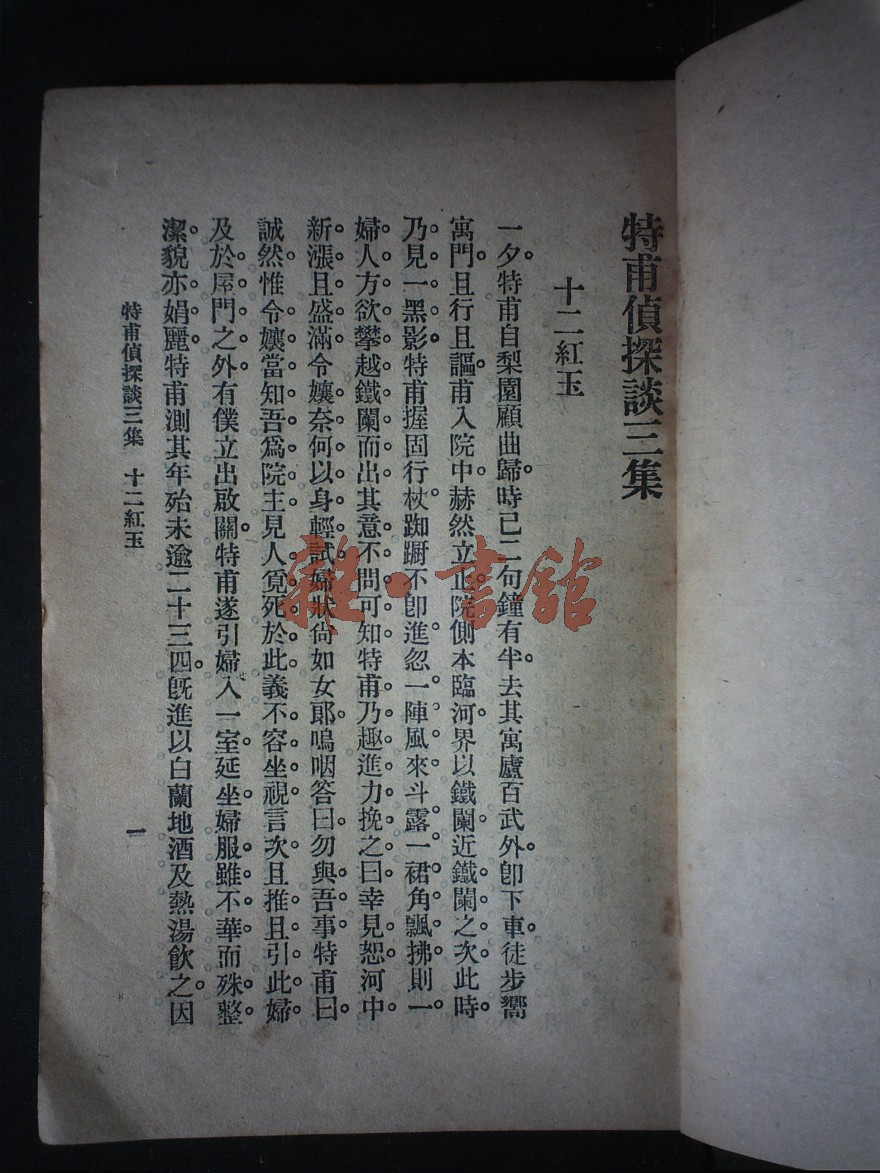 特甫偵探談三集
十二紅玉
一夕。特甫自梨園顧曲歸。時已二句鐘有半。去其寓廬百武外。卽下車。徒步嚮
寓門。且行且謳。甫入院中。赫然立止。院側本臨河。界以鐵闌。近鐵闌之次。此時
乃見一黑影。特甫握固行杖。踟蹰不卽進。忽一陣風來。斗露一裙角飄拂。則一
婦人方欲攀越鐵闌而出。其意不問可知。特甫乃趣進。力挽之曰。幸見恕。河中
新漲且盛滿。令孃奈何以身輕試。婦狀尙如女郞。嗚咽答曰。勿與吾事。特甫曰。
誠然。惟令孃當知吾爲院主。見人覓死於此。義不容坐視。言次。且推且引此婦
及於屋門之外。有僕立出啟關。特甫遂引婦入一室。延坐。婦服雖不華。而殊整
潔。貌亦娟麗。特甫測其年殆未逾二十三四。旣進以白蘭地酒及熱湯飮之。因
特甫偵探談三集 十二紅玉
一
雜·書館